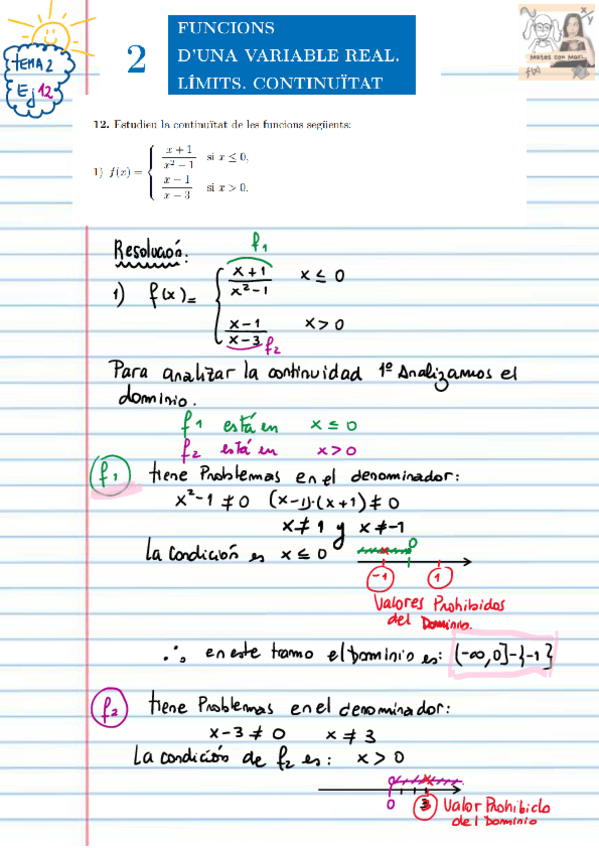 TEMA 2
Ej 12
2
FUNCIONS
D'UNA VARIABLE REAL.
LÍMITS. CONTINUÏTAT
Mates con Mari...
f(x)
12. Estudieu la continuïtat de les funcions següents:
1) f(x) = { (x + 1)/(x² − 1) si x ≤ 0,
(x − 1)/(x − 3) si x > 0.
Resolución:
f1
1) f(x) = { (x+1)/(x²-1) x ≤ 0
(x-1)/(x-3) x > 0
f2
Para analizar la continuidad 1º Analizamos el
dominio.
f1 está en x ≤ 0
f2 está en x > 0
f1 tiene Problemas en el denominador:
x²-1 ≠ 0 (x-1)·(x+1) ≠ 0
x ≠ 1 y x ≠ -1
La condición es x ≤ 0
0
-1 1
Valores Prohibidos
del Dominio.
∴ en este tramo el Dominio es: (-∞,0]-{-1}
f2 tiene Problemas en el denominador:
x-3 ≠ 0 x ≠ 3
La condición de f2 es: x > 0
0 3 Valor Prohibido
del Dominio